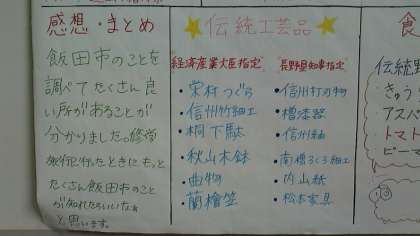 感想・まとめ
飯田市のことを
調べてたくさん良
い所があることが
分かりました。修学
旅行に行ったときにもっと
たくさん飯田市のこと
が知れたらいいなぁ
と思います。
伝統工芸品
経済産業大臣指定
・栄村つぐら
・信州竹細工
・桐下駄
・秋山木鉢
・曲物
・蘭檜笠
長野県知事指定
・信州打刃物
・檜漆器
・信州紬
・南檜ろくろ細工
・内山紙
・松本家具
伝統野
きゅう
アスパ
トマト
ピーマ